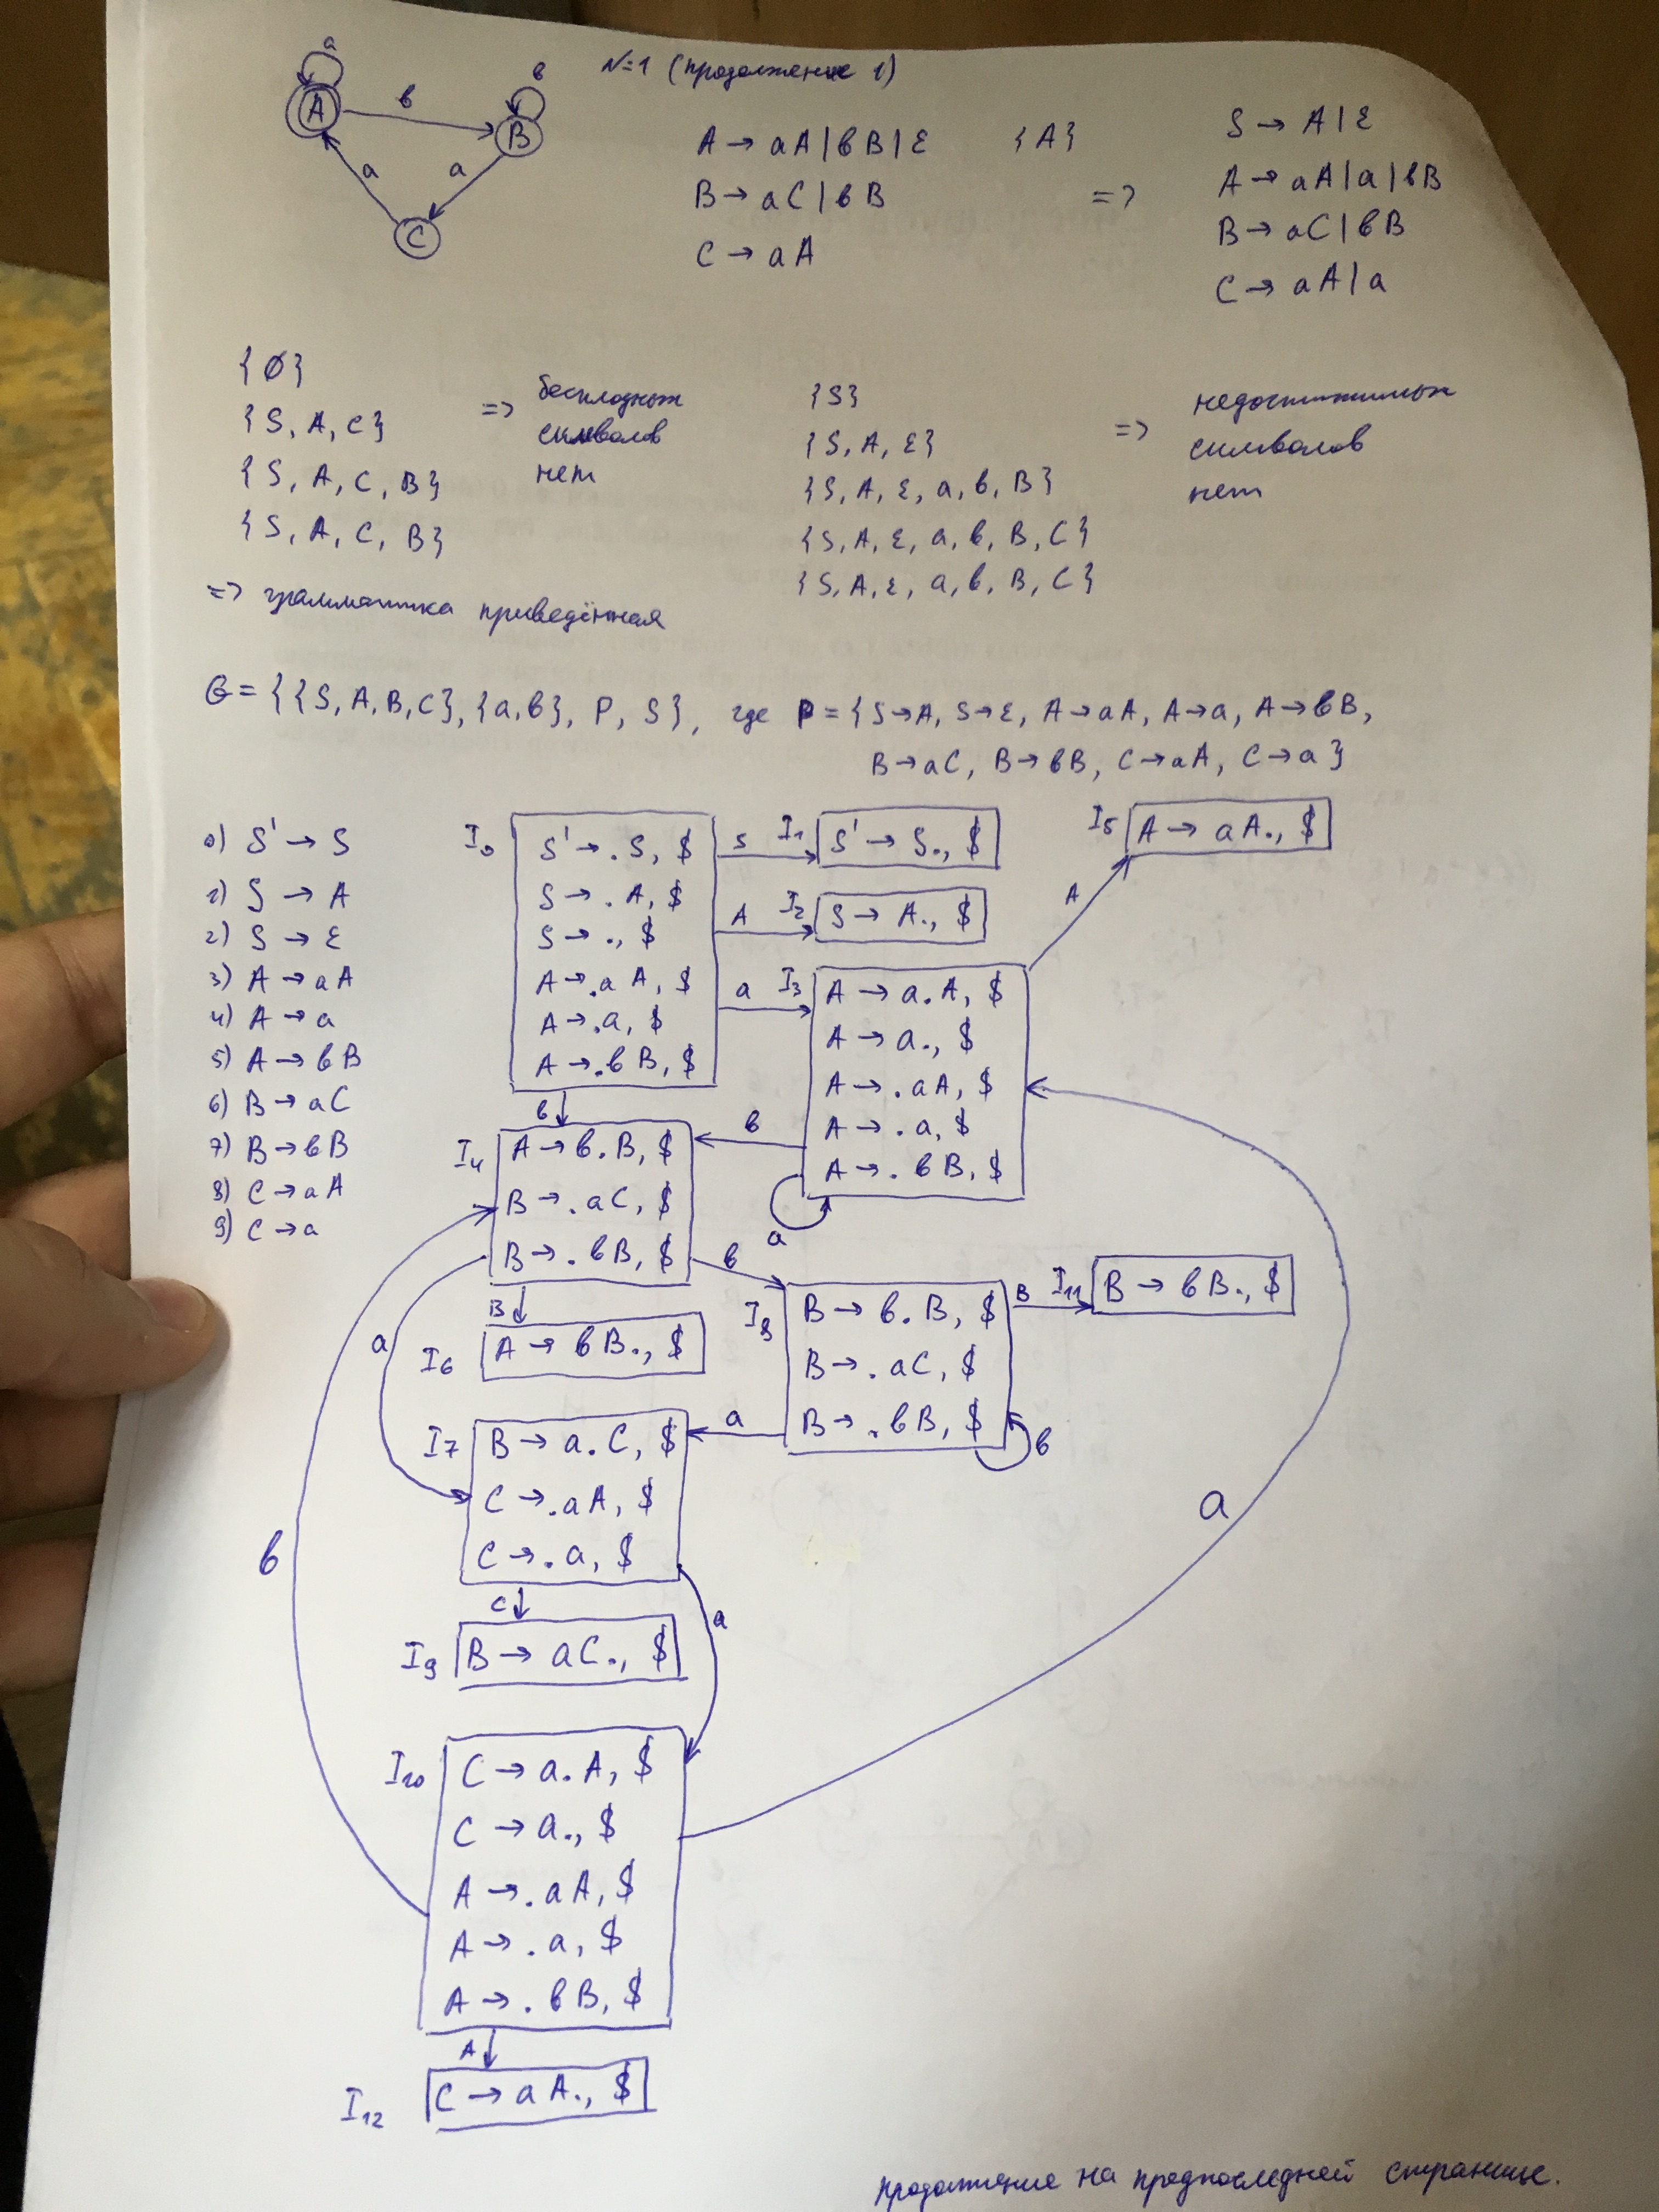 N=1 (продолжение 1)
a
A
в
в
B
a
a
C
A → aA | вB | ε
B → aC | вB
C → aA
{A}
=>
S → A | ε
A → aA | a | вB
B → aC | вB
C → aA | a
{Ø}
{S, A, C}
{S, A, C, B}
{S, A, C, B}
=> бесплодных
символов
нет
{S}
{S, A, ε}
{S, A, ε, a, в, B}
{S, A, ε, a, в, B, C}
{S, A, ε, a, в, B, C}
=> недостижимых
символов
нет
=> грамматика приведённая
G = {{S, A, B, C}, {a, в}, P, S}, где P = {S→A, S→ε, A→aA, A→a, A→вB,
B→aC, B→вB, C→aA, C→a}
0) S' → S
1) S → A
2) S → ε
3) A → aA
4) A → a
5) A → вB
6) B → aC
7) B → вB
8) C → aA
9) C → a
I0
S' → .S, $
S → .A, $
S → ., $
A → .aA, $
A → .a, $
A → .вB, $
S
I1
S' → S., $
A
I2
S → A., $
a
I3
A → a.A, $
A → a., $
A → .aA, $
A → .a, $
A → .вB, $
A
I5
A → aA., $
в
в
a
I4
A → в.B, $
B → .aC, $
B → .вB, $
B
в
a
I6
A → вB., $
I8
B → в.B, $
B → .aC, $
B → .вB, $
B
I11
B → вB., $
a
в
I7
B → a.C, $
C → .aA, $
C → .a, $
C
a
I9
B → aC., $
в
a
I10
C → a.A, $
C → a., $
A → .aA, $
A → .a, $
A → .вB, $
A
I12
C → aA., $
продолжение на предпоследней странице.